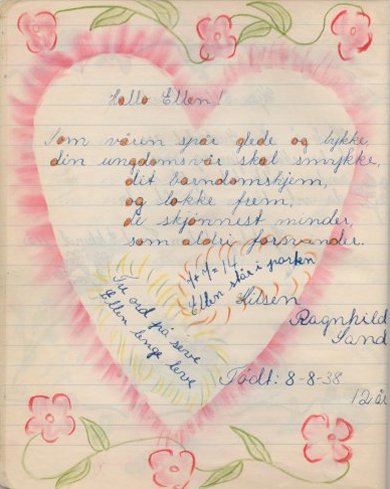 Hallo Ellen!
Som våren spår glede og lykke,
din ungdomsvår skal smykke,
dit barndomshjem,
og lokke frem,
de skjønnest minder,
som aldri forsvinder.
7+7=14
Ellen står i parken
Tu ord på seve
Ellen lenge leve
Hilsen
Ragnhild
Sand
Født: 8-8-38
12 år